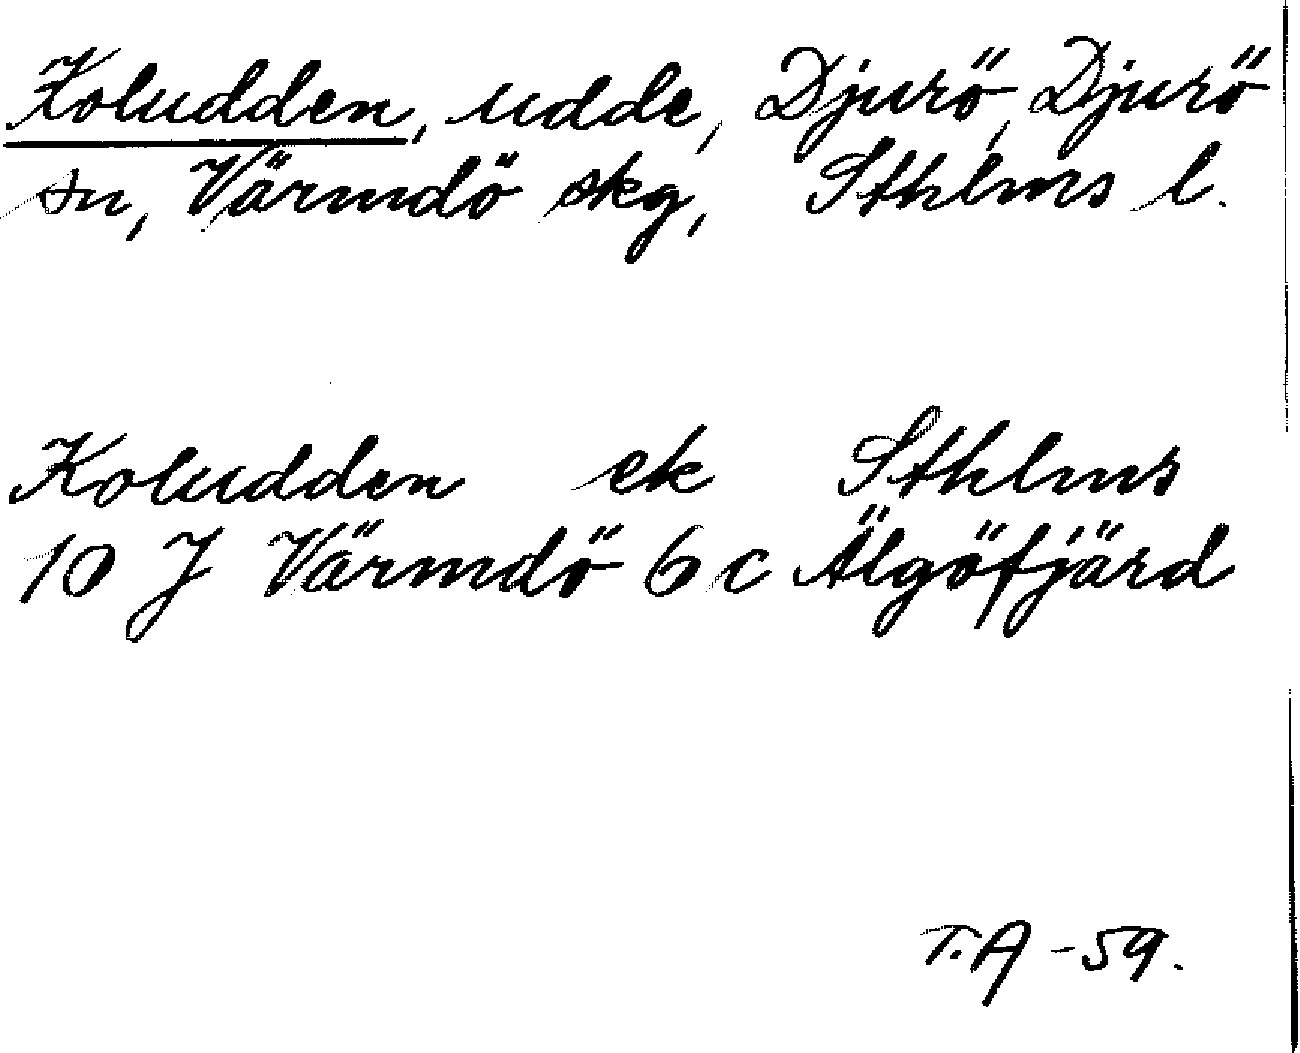 Koludden, udde, Djurö, Djurö
sn, Värmdö skg, Sthlms l.
Koludden ek Sthlms
10 J Värmdö 6 c Älgöfjärd
T.A -59.